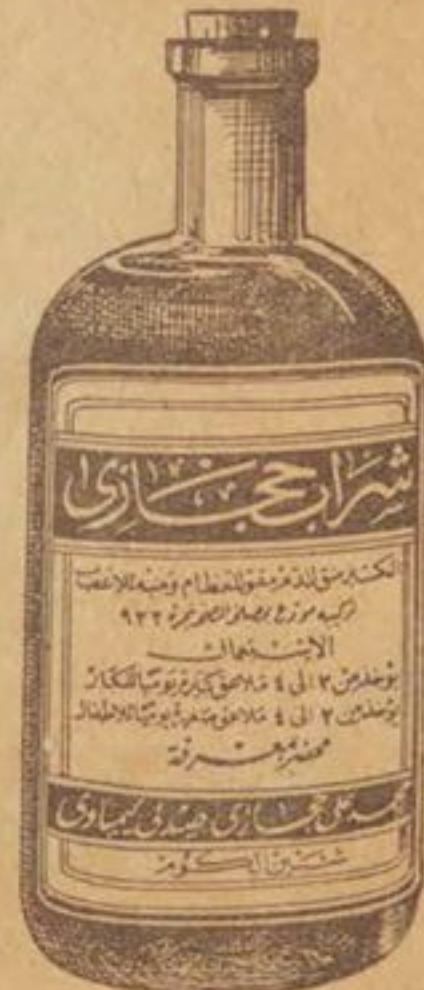 شراب حجازى
اكسير منق للدم مقو للعظام ومنبه للاعصاب
تركيبه مودع بمصلحة الصحة نمرة ٩٢٢
الاستعمال
يؤخذ من ٣ الى ٤ ملاعق كبيرة يوميا للكبار
يؤخذ من ٢ الى ٤ ملاعق صغيرة يوميا للاطفال
محضر بمعرفة
محمد على حجازى صيدلى كيماوى
شبين الكوم